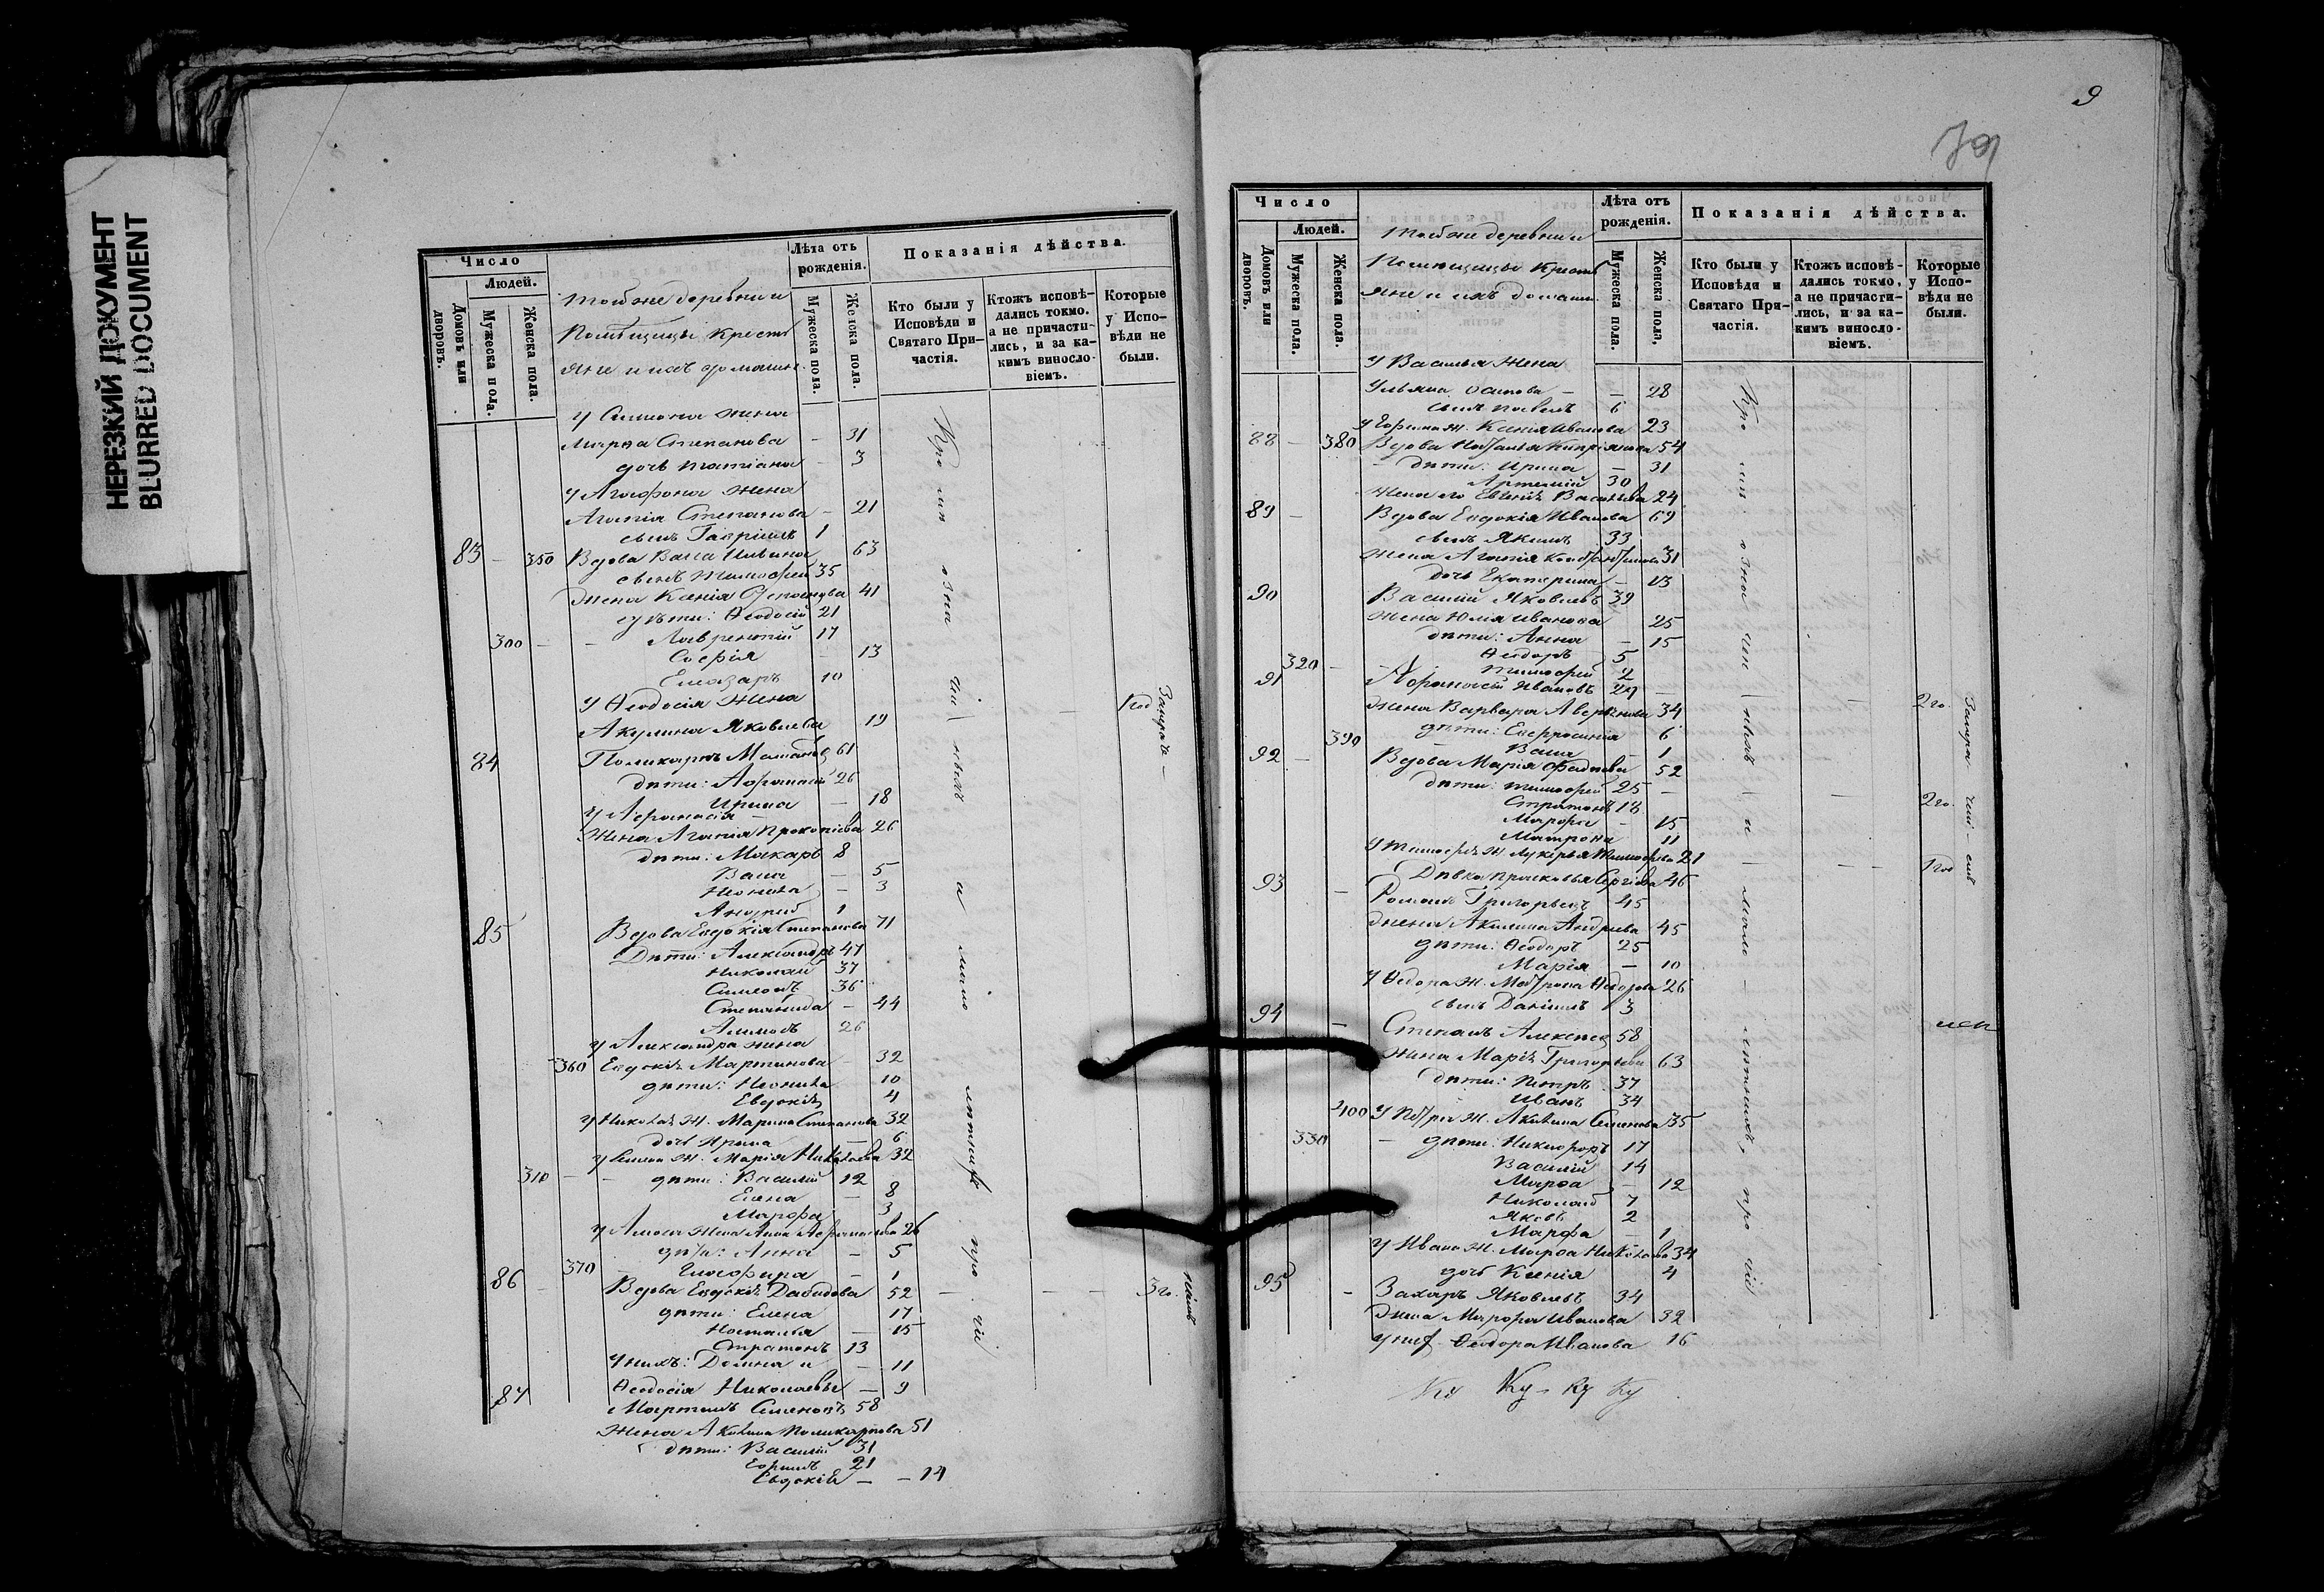 НЕРЕЗКИЙ ДОКУМЕНТ
BLURRED DOCUMENT
Число
Людей.
Домовъ или дворовъ.
Мужеска пола.
Женска пола.
Тойже деревни и
Помѣщицы крестъ
яне и ихъ домашн.
Лѣта отъ рожденія.
Мужеска пола.
Женска пола.
Показанія дѣйства.
Кто были у Исповѣди и Святаго Причастія.
Ктожъ исповѣдались токмо, а не причастились, и за какимъ винословіемъ.
Которые у Исповѣди не были.
у Симиона жена
Марѳа Степанова — 31
дочь Татіана — 3
у Агаѳона жена
Агапія Степанова — 21
сынъ Гавріилъ 1
83 — 350 Вдова Васса Ильина 63
сынъ Тимоѳей 35
жена Ксенія 41
дѣти: Ѳеодосій 21
300 — — Лаврентій 17
Софія — 13
Елиазаръ 10
у Ѳеодосія жена
Акулина Яковлева 19
1 год
84 Поликарпъ 61
дѣти: Афанасій 26
Ирина — 18
у Афанасія —
жена Агапія Прокопіева 26
дѣти: Макаръ 8
Васса — 5
Неонила — 3
Андрей 1
85 Вдова Евдокія Степанова 71
Дѣти: Александръ 47
Николай 37
Симеонъ 36
Степанида — 44
26
у Александра жена
360 Евдокія Мартинова — 32
дѣти: Неонила 10
Евдокія 4
у Николая ж. Марина Степанова 32
дочь Ирина — 6
ж. Марія Николаева 32
310 — — дѣти: Василій 12
Елена — 8
Марфа 3
жена Анна Афанасіева 26
дѣти: Анна — 5
370 Глафира — 1
86 — Вдова Евдокія Давидова 52 — — — 3 го.
дѣти: Елена 17
Наталья — 15
Стратонъ 13
у нихъ: Домна и — 11
Ѳеодосія Николаевы — 9
87 Мартинъ Семеновъ 58
Жена Акилина Поликарпова 51
дѣти: Василій 31
Ефимъ 21
Евдокія — — 14
9
79
Число
Людей.
Домовъ или дворовъ.
Мужеска пола.
Женска пола.
Тойже деревни и
Помѣщицы крестъ
яне и ихъ домашн.
Лѣта отъ рожденія.
Мужеска пола.
Женска пола.
Показанія дѣйства.
Кто были у Исповѣди и Святаго Причастія.
Ктожъ исповѣдались токмо, а не причастились, и за какимъ винословіемъ.
Которые у Исповѣди не были.
у Василья жена
Ульяна Осипова — — 28
сынъ Павелъ 6
у Ефима ж. Ксенія Иванова 23
88 — 380 Вдова Наталья Кипріянова 54
— дѣти: Ирина — 31
Артемій 30
жена его Евгенія Васильева 24
89 — Вдова Евдокія Иванова 69
сынъ Якимъ 33
жена Агапія Константинова 31
дочь Екатерина — 13
90 Василій Яковлевъ 39
жена Юлія Иванова 25
дѣти: Анна — 15
Ѳеодоръ 5
320 — — Тимофей 2
91 Афанасій Ивановъ 27 —
жена Варвара 34 2 го.
дѣти: Евфросинія 6
390 Васса 1
92 — Вдова Марія Фадеева 52
дѣти: Тимофей 25 —
Стратонъ 18 2 го.
Марфа — 15
Матрона 11
у Тимофея ж. Лукерья Тимофеева 21
Дѣвка Прасковья Сергіева 46 1 год
93 — Романъ Григорьевъ 45
жена Акилина Андреева 45
дѣти: Ѳеодоръ 25
Марія — 10
у Ѳедора ж. Матрона Ѳедорова 26
сынъ Даніилъ 3
94 — Степанъ 58
жена Марія Григорьева 63
дѣти: Петръ 37
Иванъ 34
400 у Петра ж. Акилина Семенова 35
330 — дѣти: Никифоръ 17
Василій 14
Марѳа — 12
Николай 7
Яковъ 2
Марфа — 1
у Ивана ж. Марѳа Николаева 34
дочь Ксенія 4
95 — Захаръ Яковлевъ 34
жена Марфа Иванова 32
Ѳеодора Иванова 16
Ку Ку Ку Ку